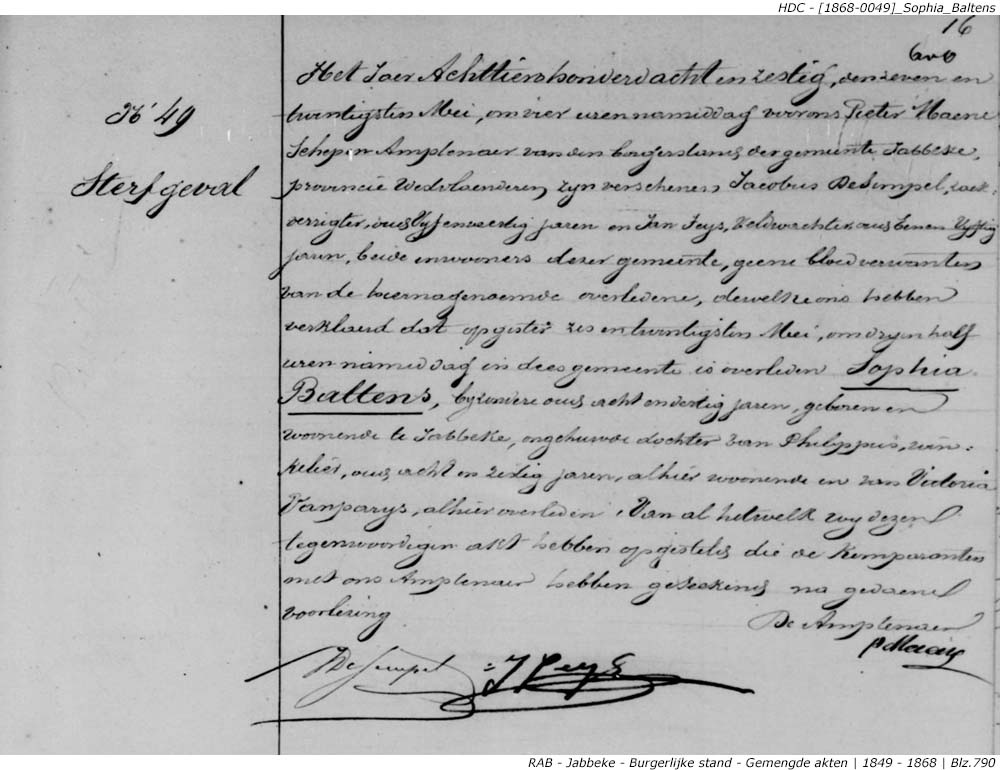 HDC - [1868-0049]_Sophia_Baltens
16
N° 49
Sterfgeval
Het Jaer Achttien honderd acht en zestig, den zeven en
twintigsten Mei, om vier uren namiddag voor ons Pieter Maene
Schepen Amptenaer van den burgerstand der gemeente Jabbeke,
provincie Westvlaenderen, zyn verschenen Jacobus DeSimpel, zaek-
verrigter, oud vyf en veertig jaren en Jan Feys, Veldwachter oud eenen vyftig
jaren, beide inwooners dezer gemeente, geene bloedverwanten
van de hiernagenoemde overledene, dewelke ons hebben
verklaerd dat op gister zes en twintigsten Mei, om dryen half
uren namiddag in dees gemeente is overleden Sophia
Baltens, byzondere oud acht en dertig jaren, geboren en
woonende te Jabbeke, ongehuwde dochter van Philippus, win-
kelier, oud acht en zestig jaren, alhier woonende en van Victoria
Vanparys, alhier overleden. Van al hetwelk wy dezen
tegenwoordigen akt hebben opgesteld die de komparanten
met ons Amptenaer hebben geteekend na gedaene
voorlezing
De Amptenaer
P Maene
DeSimpel J Feys
RAB - Jabbeke - Burgerlijke stand - Gemengde akten | 1849 - 1868 | Blz.790